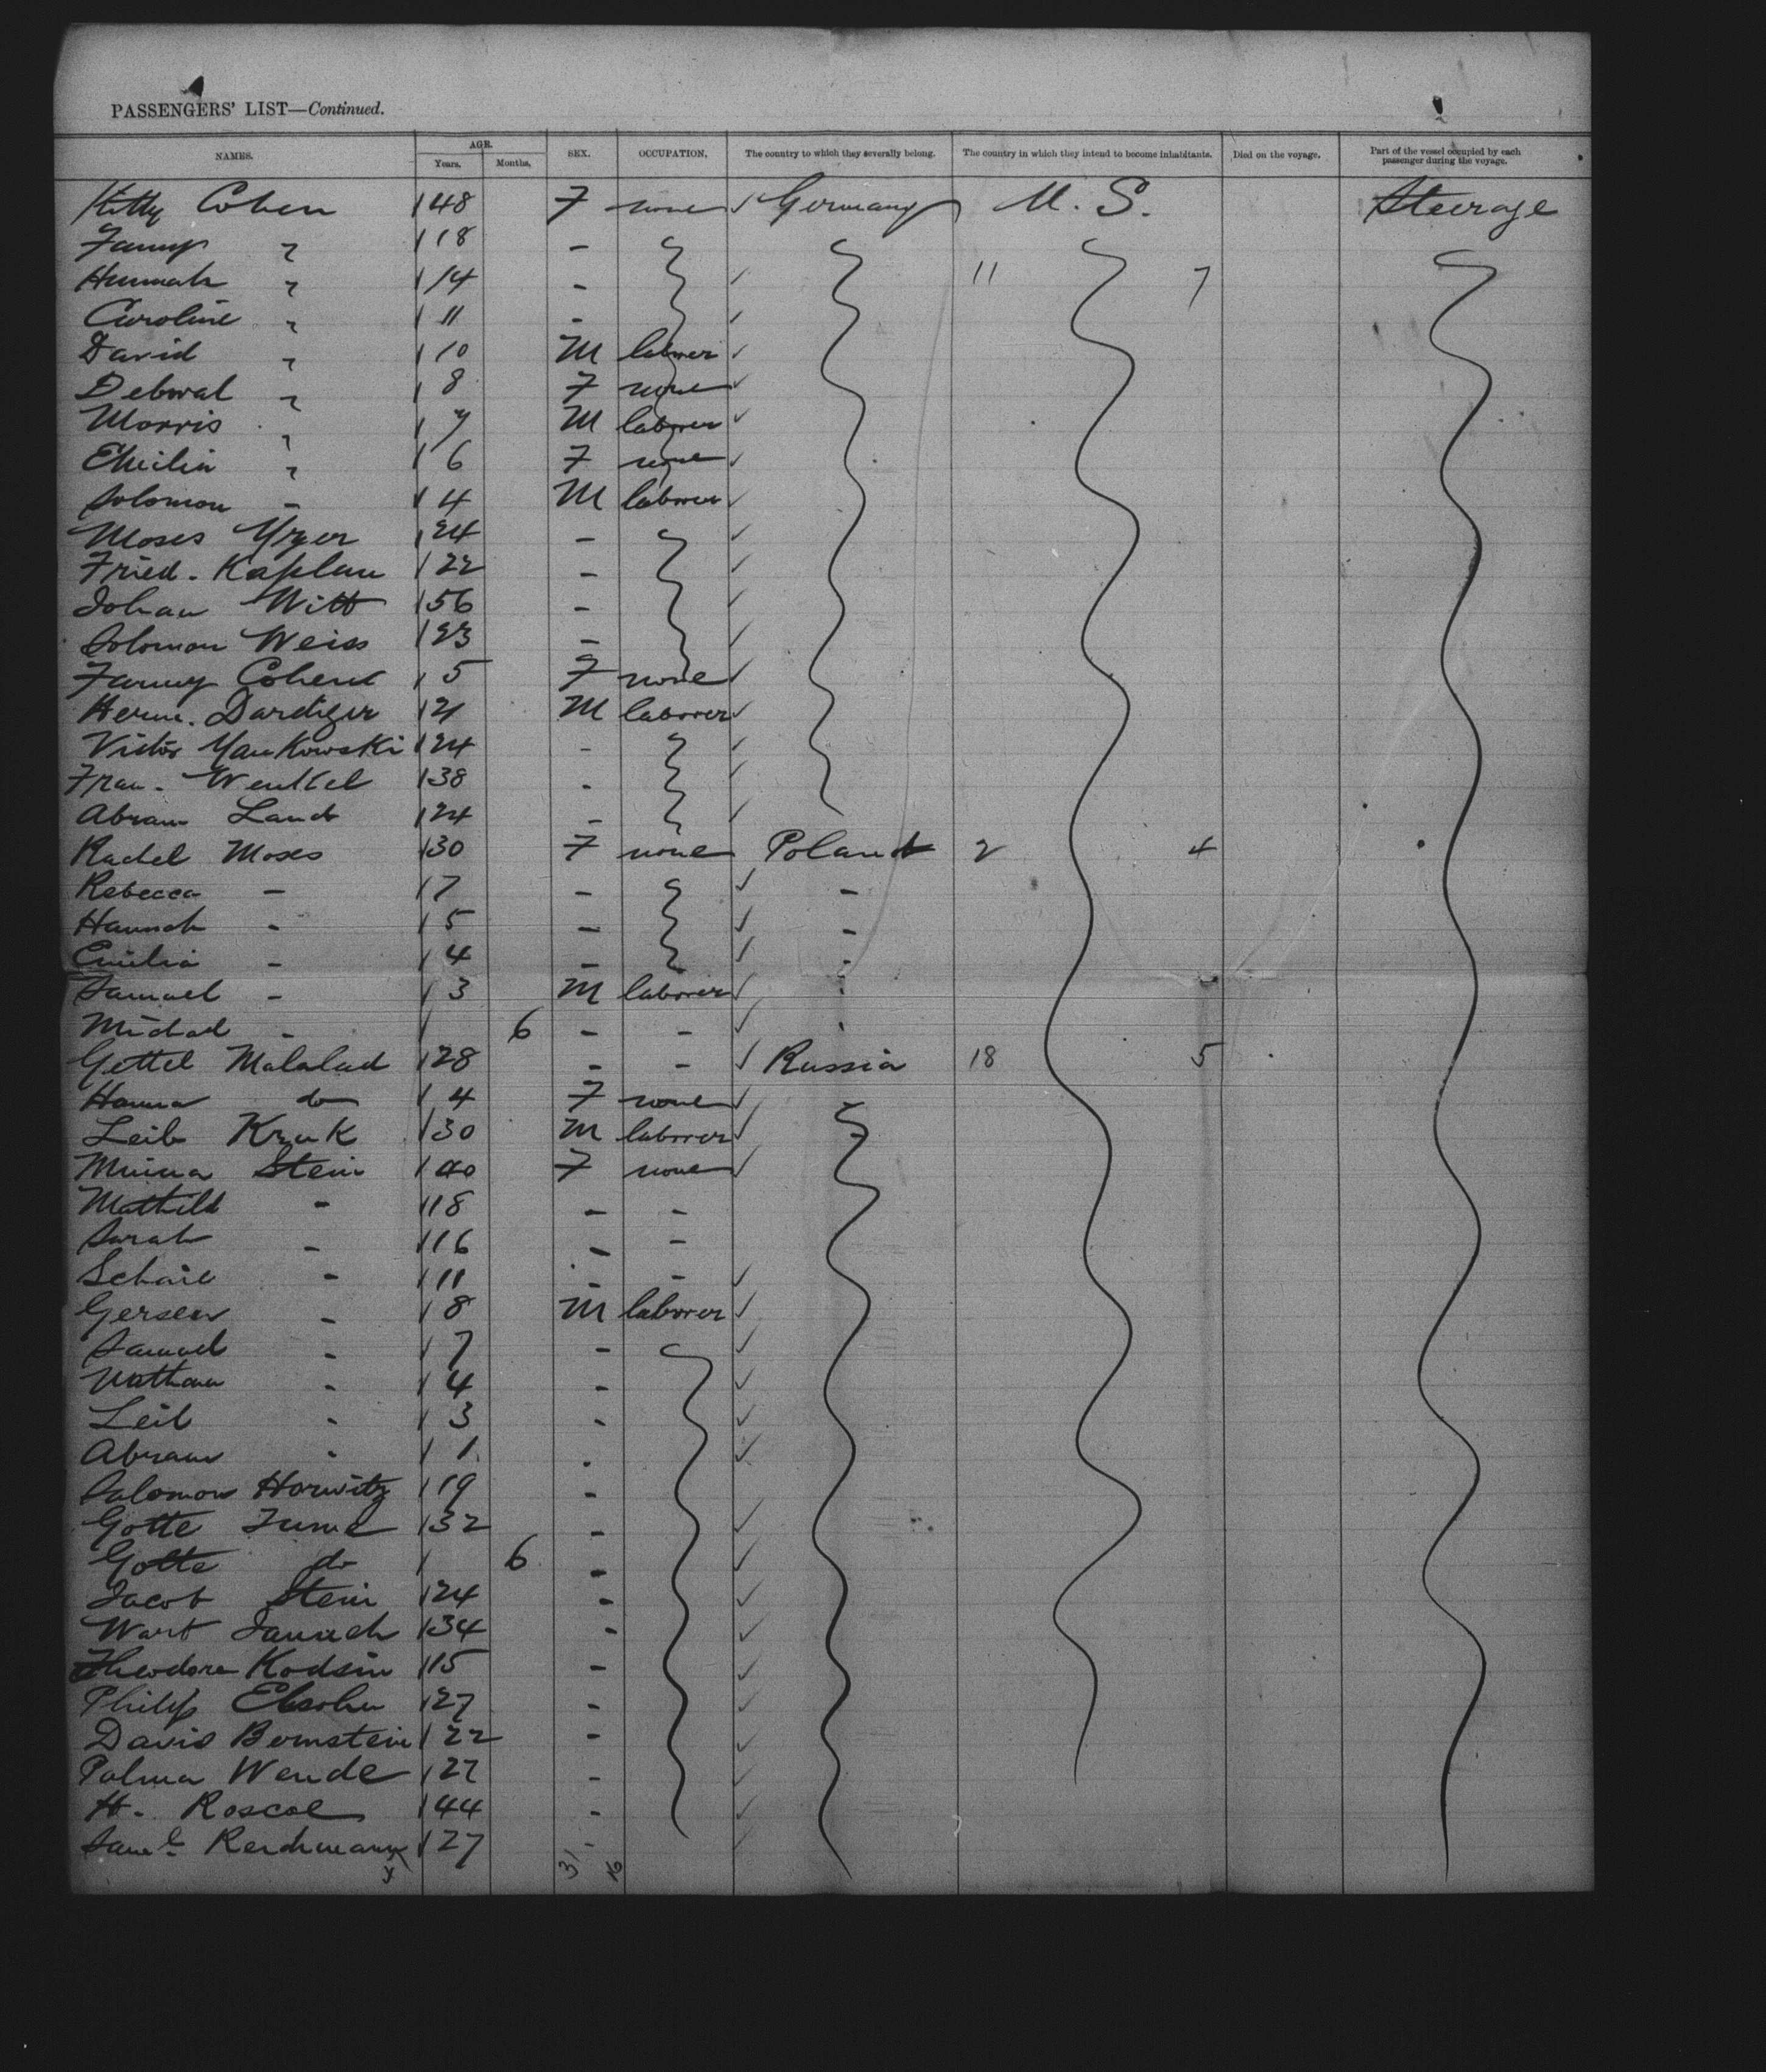 PASSENGERS' LIST—Continued.
NAMES. AGE. Years. Months. SEX. OCCUPATION. The country to which they severally belong. The country in which they intend to become inhabitants. Died on the voyage. Part of the vessel occupied by each passenger during the voyage.
Kitty Cohen 48 F none Germany U. S. Steerage
Fanny " 18 -
Hannah " 14 - 11 7
Caroline " 11 -
David " 10 M laborer
Deborah " 8 F none
Morris " 7 M laborer
Emilia " 6 F none
Solomon - 4 M laborer
Moses 24 -
Fried. Kaplan 22 -
Johan Witt 56 -
Solomon Weiss 23 -
Fanny 5 F none
Herm. 21 M laborer
Victor Yankowski 24 -
Fran. Wenkel 38 -
Abram Land 24 -
Rachel Moses 30 F none Poland 2 4
Rebecca - 7 - -
Hannah - 5 - -
Emilia - 4 - -
Samuel - 3 M laborer
Michael - 6 - -
Gettel Malalad 28 - - Russia 18 5
Hanna do 4 F none
Leib Kruk 30 M laborer
Minna Stein 40 F none
Mathild - 18 - -
Sarah - 16 - -
11 - -
Gersen - 8 M laborer
Samuel - 7 -
Nathan - 4 -
Leib - 3 -
Abram - 1 -
Salomon Horwitz 19 -
Gotte 32 -
Gotte do 6 -
Jacob Stein 24 -
34 -
Theodore Kodsin 15 -
Philip 27 -
David Bernstein 22 -
Palma Wende 27 -
H. Roscoe 44 -
Saml. 27 -
31 16